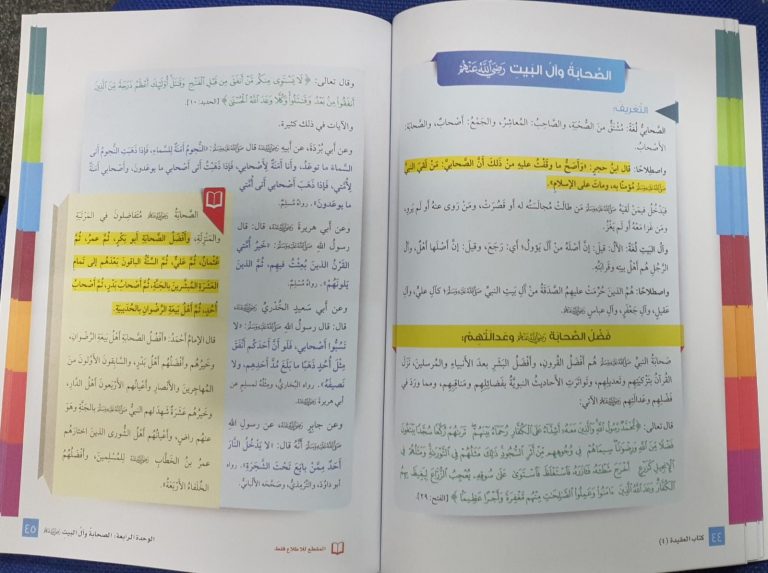 الصَّحابَةُ وآلُ البَيتِ رَضِيَ اللَّهُ عَنْهُمْ
التَّعريفُ:
الصحابيُّ لُغَةً: مُشتَقٌّ منَ الصُّحْبَةِ، والصَّاحِبُ: المُعاشِرُ، والجَمْعُ: أصْحابٌ، والصَّحابَةُ:
الأصْحابُ.
واصطلاحًا: قال ابنُ حجرٍ: «وَأصَحُّ ما وقَفْتُ عليهِ مِنْ ذلكَ أنَّ الصحابيَّ: مَنْ لَقِيَ النبيَّ
صلى الله عليه وسلم مُؤمنًا به، وماتَ على الإسلامِ».
فيَدْخُلُ فيمَنْ لَقيَهُ صلى الله عليه وسلم مَن طالَتْ مُجالَسَتُه له أو قَصُرَتْ، ومَنْ رَوَى عنهُ أو لم يَروِ،
ومَن غَزا مَعَهُ أو لم يَغْزُ.
وآلُ البَيْتِ لُغَةً: الآلُ: قيلَ: إنَّ أصْلَهُ مِنْ آلَ يَؤولُ؛ أي: رَجَعَ، وقيلَ: إنَّ أصلَها أهْلُ، وآلُ
الرَّجُلِ هُم أهْلُ بيتِهِ وقَرابَتُه.
واصطلاحًا: هُمُ الذينَ حَرُمَتْ عليهِمُ الصَّدَقَةُ منْ آلِ بَيتِ النبيِّ صلى الله عليه وسلم؛ كآلِ عليٍّ، وآلِ
عقيلٍ، وآلِ جَعْفَرٍ، وآلِ عباسٍ
فَضْلُ الصَّحابَةِ وعَدالَتُهُمْ:
صَحابَةُ النبيِّ صلى الله عليه وسلم هُم أفضَلُ القُرونِ، وأفضَلُ البَشَرِ بعدَ الأنبياءِ والمُرسلينَ، نَزَلَ
القرآنُ بتَزْكيَتِهم وتَعديلِهم، وتَواتَرَتِ الأحاديثُ النبويَّةُ بفَضائِلِهم ومَناقِبِهم، ومما ورَدَ في
فَضْلِهم وعَدالَتِهم الآتي:
قال تعالى: ﴿مُحَمَّدٌ رَسُولُ اللَّهِ وَالَّذِينَ مَعَهُ أَشِدَّاءُ عَلَى الْكُفَّارِ رُحَمَاءُ بَيْنَهُمْ تَرَاهُمْ رُكَّعًا سُجَّدًا يَبْتَغُونَ
فَضْلًا مِنَ اللَّهِ وَرِضْوَانًا سِيمَاهُمْ فِي وُجُوهِهِم مِّنْ أَثَرِ السُّجُودِ ذَلِكَ مَثَلُهُمْ فِي التَّوْرَاةِ وَمَثَلُهُمْ فِي
الْإِنجِيلِ كَزَرْعٍ أَخْرَجَ شَطْأَهُ فَآزَرَهُ فَاسْتَغْلَظَ فَاسْتَوَى عَلَى سُوقِهِ يُعْجِبُ الزُّرَّاعَ لِيَغِيظَ بِهِمُ
الْكُفَّارَ وَعَدَ اللَّهُ الَّذِينَ آمَنُوا وَعَمِلُوا الصَّالِحَاتِ مِنْهُم مَّغْفِرَةً وَأَجْرًا عَظِيمًا﴾ [الفتح: ٢٩].
٤٤ كتاب العقيدة (٤)
وقال تعالى: ﴿لَا يَسْتَوِي مِنكُم مَّنْ أَنفَقَ مِن قَبْلِ الْفَتْحِ وَقَاتَلَ أُولَئِكَ أَعْظَمُ دَرَجَةً مِّنَ الَّذِينَ
أَنفَقُوا مِن بَعْدُ وَقَاتَلُوا وَكُلًّا وَعَدَ اللَّهُ الْحُسْنَى﴾ [الحديد: ١٠].
والآيات في ذلك كثيرة.
وعن أبي بُرْدَةَ، عن أبيهِ قال صلى الله عليه وسلم: «النُّجومُ أمَنَةٌ للسَّماءِ، فإذا ذَهَبَتِ النُّجومُ أتى
السَّماءَ ما توعَدُ، وأنا أمَنَةٌ لأصحابي، فإذا ذَهَبْتُ أتى أصْحابي ما يوعَدونَ، وأصْحابي أمَنَةٌ
لأُمَّتي، فإذا ذَهَبَ أصْحابي أتى أُمَّتي
ما يوعَدونَ». رواهُ مُسْلِمٌ.
وعن أبي هريرةَ قال: قال
رسولُ اللهِ صلى الله عليه وسلم: «خَيرُ أُمَّتي
القَرْنُ الذينَ بُعِثْتُ فيهِم، ثُمَّ الذينَ
يَلونَهُم». رواهُ مُسْلِمٌ.
وعن أبي سَعيدٍ الخُدْريِّ
قال: قال رسولُ اللهِ صلى الله عليه وسلم: «لا
تَسُبُّوا أصْحابي، فلَو أنَّ أحَدَكُم أنْفَقَ
مِثْلَ أُحُدٍ ذَهَبًا ما بَلَغَ مُدَّ أحَدِهِم، ولا
نَصيفَهُ». رواه البُخاريُّ، ومثْلُهُ لمسلمٍ عن
أبي هريرةَ
وعن جابرٍ عن رسولِ اللهِ
صلى الله عليه وسلم أنَّهُ قال: «لا يَدْخُلُ النَّارَ
أحَدٌ مِمَّنْ بايَعَ تَحْتَ الشَّجَرَةِ». رواه
أبو داوُدَ، والتِّرْمِذيُّ، وصَحَّحَه الألْبانيُّ.
الصَّحابَةُ مُتفاضِلونَ في المَرْتَبَةِ
والمَنْزِلَةِ، وأفْضَلُ الصَّحابَةِ أبو بَكْرٍ، ثُمَّ عمرُ، ثُمَّ
عُثْمانُ، ثُمَّ عليٌّ، ثُمَّ السِّتَّةُ الباقونَ بَعْدَهُم إلى تَمامِ
العَشَرَةِ المُبَشَّرينَ بالجَنَّةِ، ثُمَّ أصْحابُ بَدْرٍ، ثُمَّ أصْحابُ
أُحُدٍ، ثُمَّ أهْلُ بَيْعَةِ الرِّضْوانِ بالحُدَيبيةِ.
قال الإمامُ أحْمَدُ: «أفْضَلُ الصَّحابَةِ أهْلُ بَيْعَةِ الرِّضْوانِ،
وخَيرُهُم وأفْضَلُهُم أهْلُ بَدْرٍ، والسابِقونَ الأوَّلونَ منَ
المُهاجرينَ والأنْصارِ وأعْيانُهم الأرْبَعونَ أهْلُ الدَّارِ،
وخَيرُهُم عَشَرَةٌ شَهِدَ لهم النبيُّ صلى الله عليه وسلم بالجَنَّةِ وهوَ
عنهُم راضٍ، وأعْيَنُهُم أهْلُ الشُّورى الذينَ اختارَهُم
عمرُ بنُ الخطَّابِ للمُسلمينَ، وأفْضَلُهُمُ
الخُلَفاءُ الأرْبَعَةُ»
المقطع للاطلاع فقط
الوحدة الرابعة: الصحابة وآل البيت ٤٥